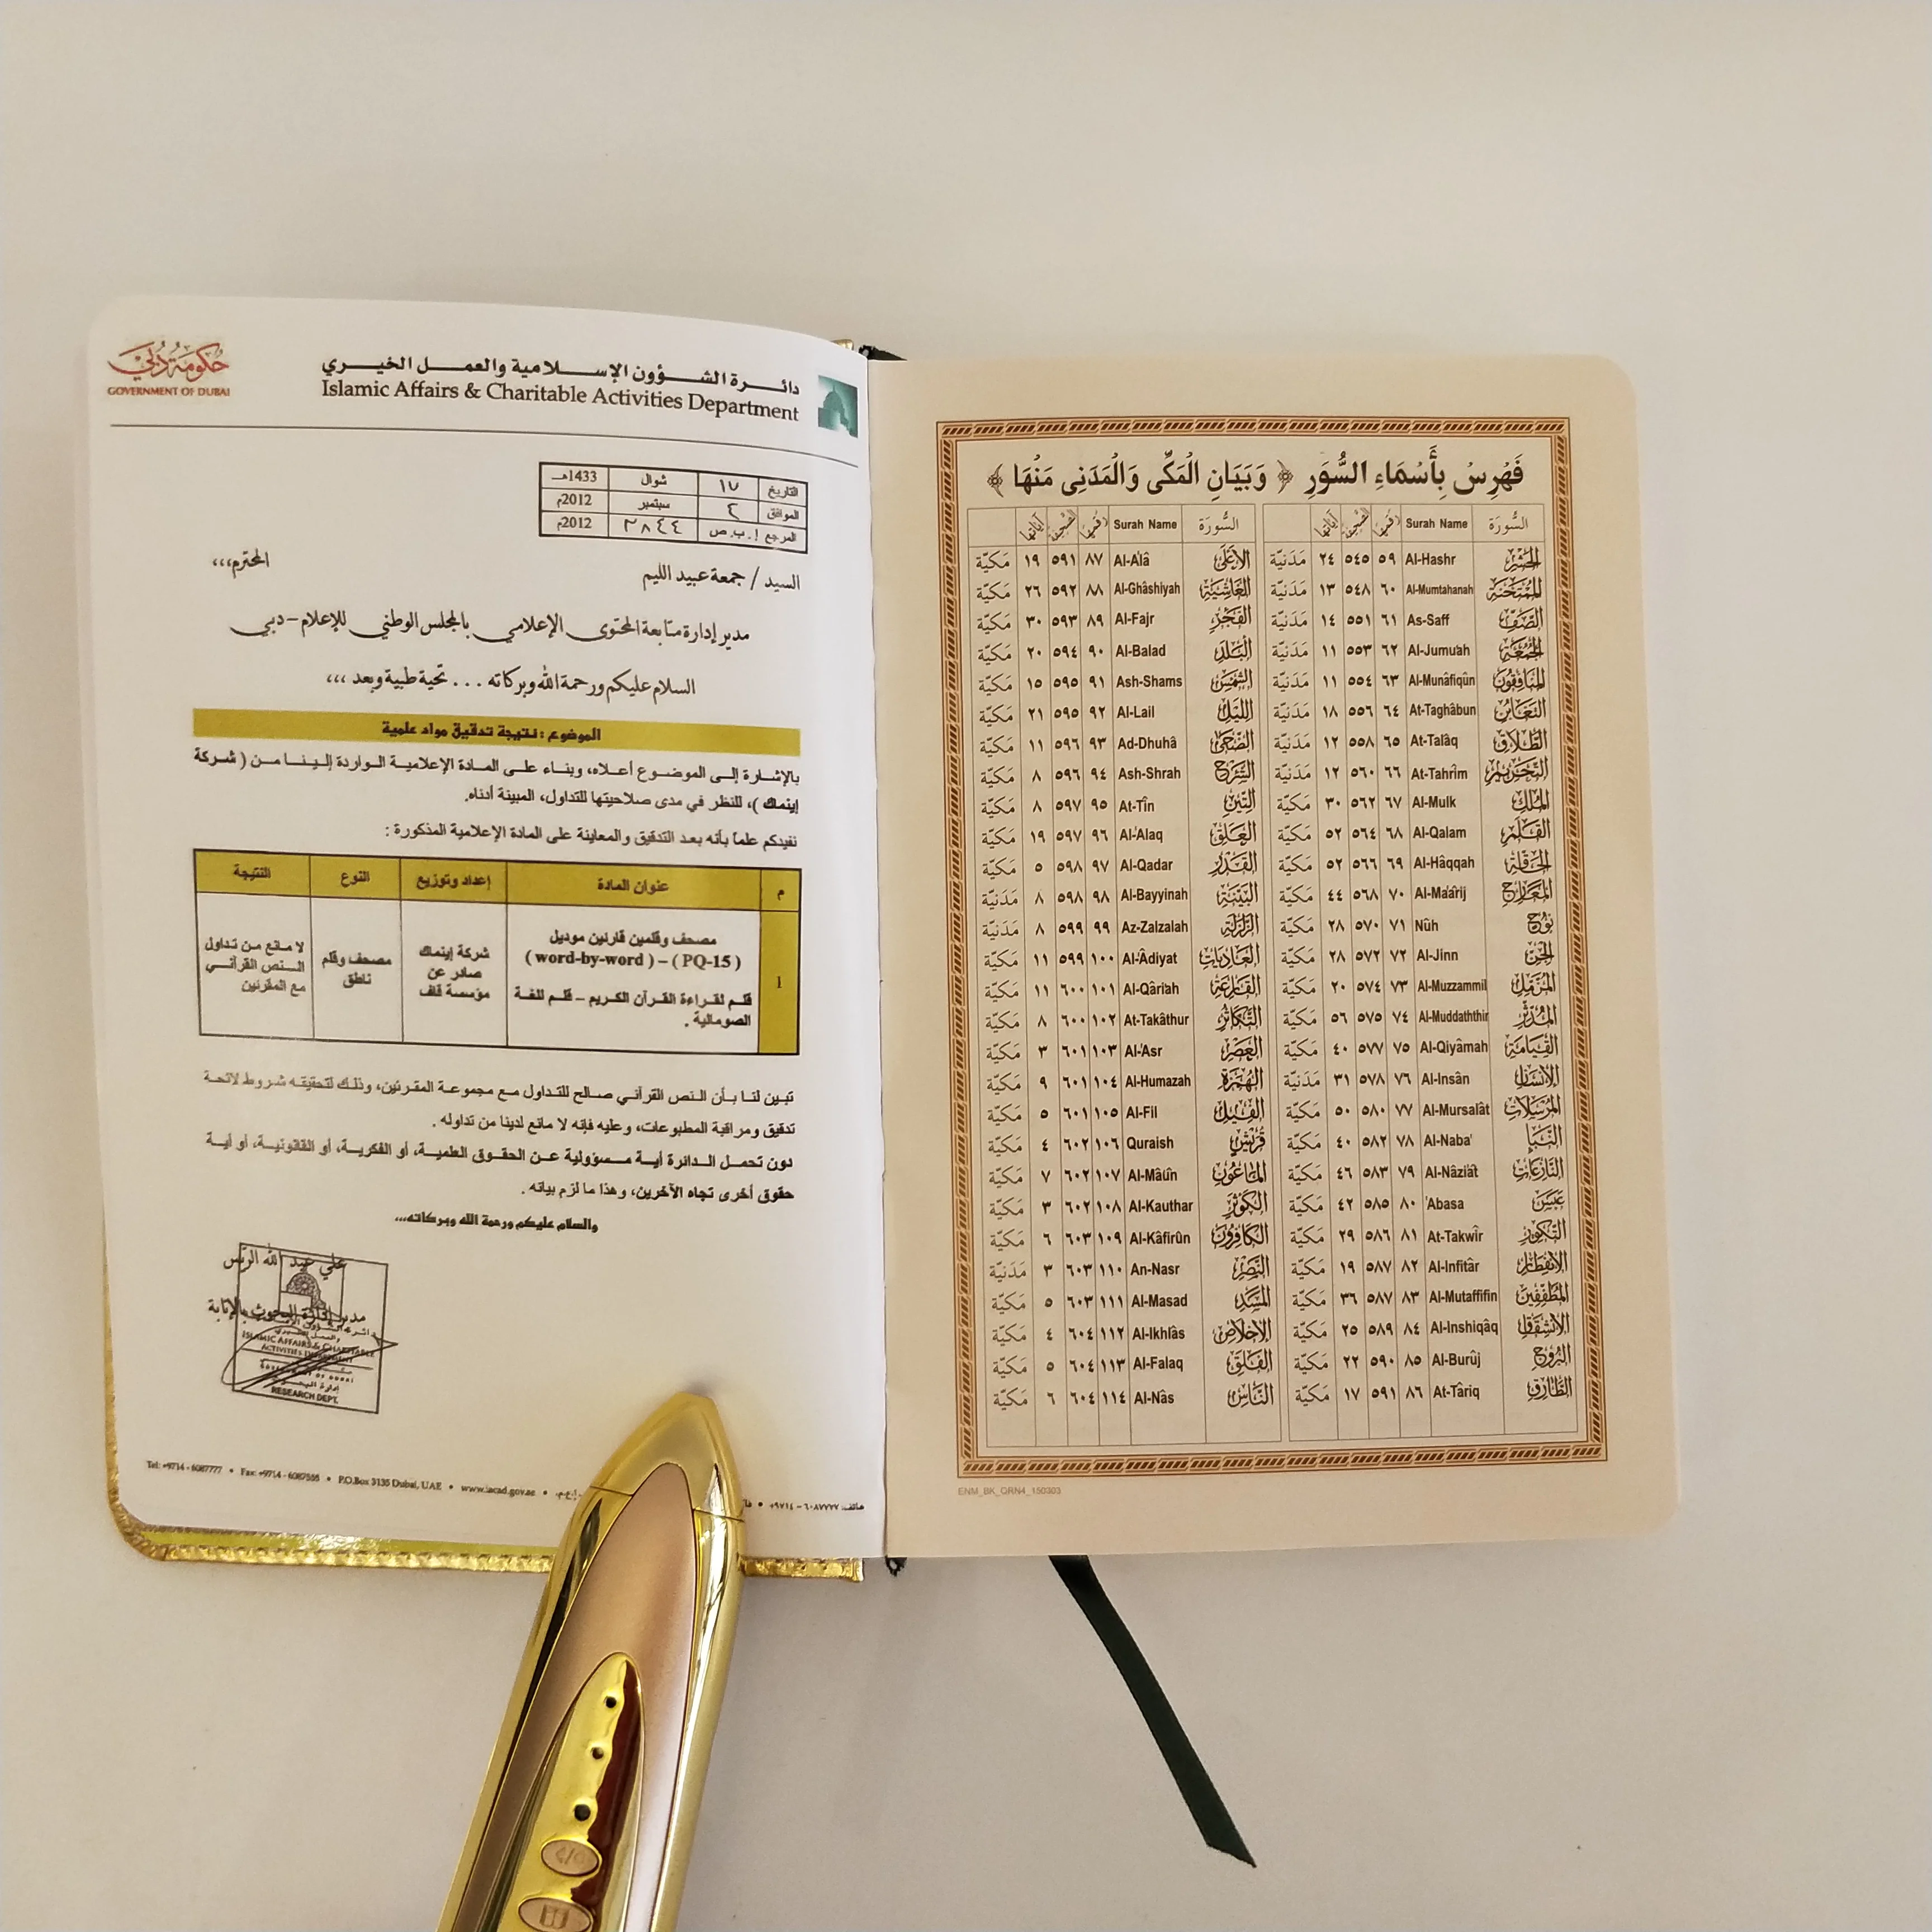 حكومة دبي
GOVERNMENT OF DUBAI
دائـــرة الشـــؤون الإســـلامية والعمـــل الخيـــري
Islamic Affairs & Charitable Activities Department
التاريخ ١٧ شوال 1433هـ
الموافق ٤ سبتمبر 2012م
المرجع أ.ب.ص ٢٨٤٤ 2012م
السيد / جمعة عبيد الليم المحترم،،،
مدير إدارة متابعة المحتوى الإعلامي بالمجلس الوطني للإعلام – دبي
السلام عليكم ورحمة الله وبركاته ... تحية طيبة وبعد ،،،
الموضوع : نتيجة تدقيق مواد علمية
بالإشارة إلى الموضوع أعلاه، وبناء على المادة الإعلامية الواردة إلينا من ( شركة
إينماك )، للنظر في مدى صلاحيتها للتداول، المبينة أدناه.
نفيدكم علماً بأنه بعد التدقيق والمعاينة على المادة الإعلامية المذكورة :
م عنوان المادة إعداد وتوزيع النوع النتيجة
1
مصحف وقلمين قارئين موديل
( PQ-15 ) – ( word-by-word )
قلم لقراءة القرآن الكريم – قلم للغة
الصومالية .
شركة إينماك
صادر عن
مؤسسة قاف
مصحف وقلم
ناطق
لا مانع من تداول
النص القرآني
مع المقرئين
تبين لنا بأن النص القرآني صالح للتداول مع مجموعة المقرئين، وذلك لتحقيقه شروط لائحة
تدقيق ومراقبة المطبوعات، وعليه فإنه لا مانع لدينا من تداوله .
دون تحمل الدائرة أية مسؤولية عن الحقوق العلمية، أو الفكرية، أو القانونية، أو أية
حقوق أخرى تجاه الآخرين، وهذا ما لزم بيانه .
والسلام عليكم ورحمة الله وبركاته،،،
علي عبد الله الريس
مدير إدارة البحوث بالإنابة
ISLAMIC AFFAIRS & CHARITABLE
ACTIVITIES DEPARTMENT
إدارة البحوث
RESEARCH DEPT.
Tel: +9714 - 6087777 • Fax: +9714 - 6087555 • P.O.Box 3135 Dubai, UAE • www.iacad.gov.ae •
هاتف: ٦٠٨٧٧٧٧ - ٩٧١٤+ •
فَهْرِسٌ بِأَسْمَاءِ السُّوَرِ ﴿ وَبَيَانِ الْمَكِّى وَالْمَدَنِى مَنْهَا ﴾
السُّورَة Surah Name رقمها الصفحة آياتها
السُّورَة Surah Name رقمها الصفحة آياتها
الحشر Al-Hashr ٥٩ ٥٤٥ ٢٤ مَدَنيّة
الممتحنة Al-Mumtahanah ٦٠ ٥٤٨ ١٣ مَدَنيّة
الصف As-Saff ٦١ ٥٥١ ١٤ مَدَنيّة
الجمعة Al-Jumu'ah ٦٢ ٥٥٣ ١١ مَدَنيّة
المنافقون Al-Munâfiqûn ٦٣ ٥٥٤ ١١ مَدَنيّة
التغابن At-Taghâbun ٦٤ ٥٥٦ ١٨ مَدَنيّة
الطلاق At-Talâq ٦٥ ٥٥٨ ١٢ مَدَنيّة
التحريم At-Tahrîm ٦٦ ٥٦٠ ١٢ مَدَنيّة
الملك Al-Mulk ٦٧ ٥٦٢ ٣٠ مَكيّة
القلم Al-Qalam ٦٨ ٥٦٤ ٥٢ مَكيّة
الحاقة Al-Hâqqah ٦٩ ٥٦٦ ٥٢ مَكيّة
المعارج Al-Ma'ârij ٧٠ ٥٦٨ ٤٤ مَكيّة
نوح Nûh ٧١ ٥٧٠ ٢٨ مَكيّة
الجن Al-Jinn ٧٢ ٥٧٢ ٢٨ مَكيّة
المزمل Al-Muzzammil ٧٣ ٥٧٤ ٢٠ مَكيّة
المدثر Al-Muddaththir ٧٤ ٥٧٥ ٥٦ مَكيّة
القيامة Al-Qiyâmah ٧٥ ٥٧٧ ٤٠ مَكيّة
الإنسان Al-Insân ٧٦ ٥٧٨ ٣١ مَدَنيّة
المرسلات Al-Mursalât ٧٧ ٥٨٠ ٥٠ مَكيّة
النبأ Al-Naba' ٧٨ ٥٨٢ ٤٠ مَكيّة
النازعات Al-Nâzi'ât ٧٩ ٥٨٣ ٤٦ مَكيّة
عبس 'Abasa ٨٠ ٥٨٥ ٤٢ مَكيّة
التكوير At-Takwîr ٨١ ٥٨٦ ٢٩ مَكيّة
الانفطار Al-Infitâr ٨٢ ٥٨٧ ١٩ مَكيّة
المطففين Al-Mutaffifin ٨٣ ٥٨٧ ٣٦ مَكيّة
الانشقاق Al-Inshiqâq ٨٤ ٥٨٩ ٢٥ مَكيّة
البروج Al-Burûj ٨٥ ٥٩٠ ٢٢ مَكيّة
الطارق At-Târiq ٨٦ ٥٩١ ١٧ مَكيّة
الأعلى Al-A'lâ ٨٧ ٥٩١ ١٩ مَكيّة
الغاشية Al-Ghâshiyah ٨٨ ٥٩٢ ٢٦ مَكيّة
الفجر Al-Fajr ٨٩ ٥٩٣ ٣٠ مَكيّة
البلد Al-Balad ٩٠ ٥٩٤ ٢٠ مَكيّة
الشمس Ash-Shams ٩١ ٥٩٥ ١٥ مَكيّة
الليل Al-Lail ٩٢ ٥٩٥ ٢١ مَكيّة
الضحى Ad-Dhuhâ ٩٣ ٥٩٦ ١١ مَكيّة
الشرح Ash-Shrah ٩٤ ٥٩٦ ٨ مَكيّة
التين At-Tîn ٩٥ ٥٩٧ ٨ مَكيّة
العلق Al-'Alaq ٩٦ ٥٩٧ ١٩ مَكيّة
القدر Al-Qadar ٩٧ ٥٩٨ ٥ مَكيّة
البينة Al-Bayyinah ٩٨ ٥٩٨ ٨ مَدَنيّة
الزلزلة Az-Zalzalah ٩٩ ٥٩٩ ٨ مَدَنيّة
العاديات Al-'Âdiyat ١٠٠ ٥٩٩ ١١ مَكيّة
القارعة Al-Qâri'ah ١٠١ ٦٠٠ ١١ مَكيّة
التكاثر At-Takâthur ١٠٢ ٦٠٠ ٨ مَكيّة
العصر Al-'Asr ١٠٣ ٦٠١ ٣ مَكيّة
الهمزة Al-Humazah ١٠٤ ٦٠١ ٩ مَكيّة
الفيل Al-Fil ١٠٥ ٦٠١ ٥ مَكيّة
قريش Quraish ١٠٦ ٦٠٢ ٤ مَكيّة
الماعون Al-Mâ'ûn ١٠٧ ٦٠٢ ٧ مَكيّة
الكوثر Al-Kauthar ١٠٨ ٦٠٢ ٣ مَكيّة
الكافرون Al-Kâfirûn ١٠٩ ٦٠٣ ٦ مَكيّة
النصر An-Nasr ١١٠ ٦٠٣ ٣ مَدَنيّة
المسد Al-Masad ١١١ ٦٠٣ ٥ مَكيّة
الإخلاص Al-Ikhlâs ١١٢ ٦٠٤ ٤ مَكيّة
الفلق Al-Falaq ١١٣ ٦٠٤ ٥ مَكيّة
الناس Al-Nâs ١١٤ ٦٠٤ ٦ مَكيّة
ENM_BK_QRN4_150303